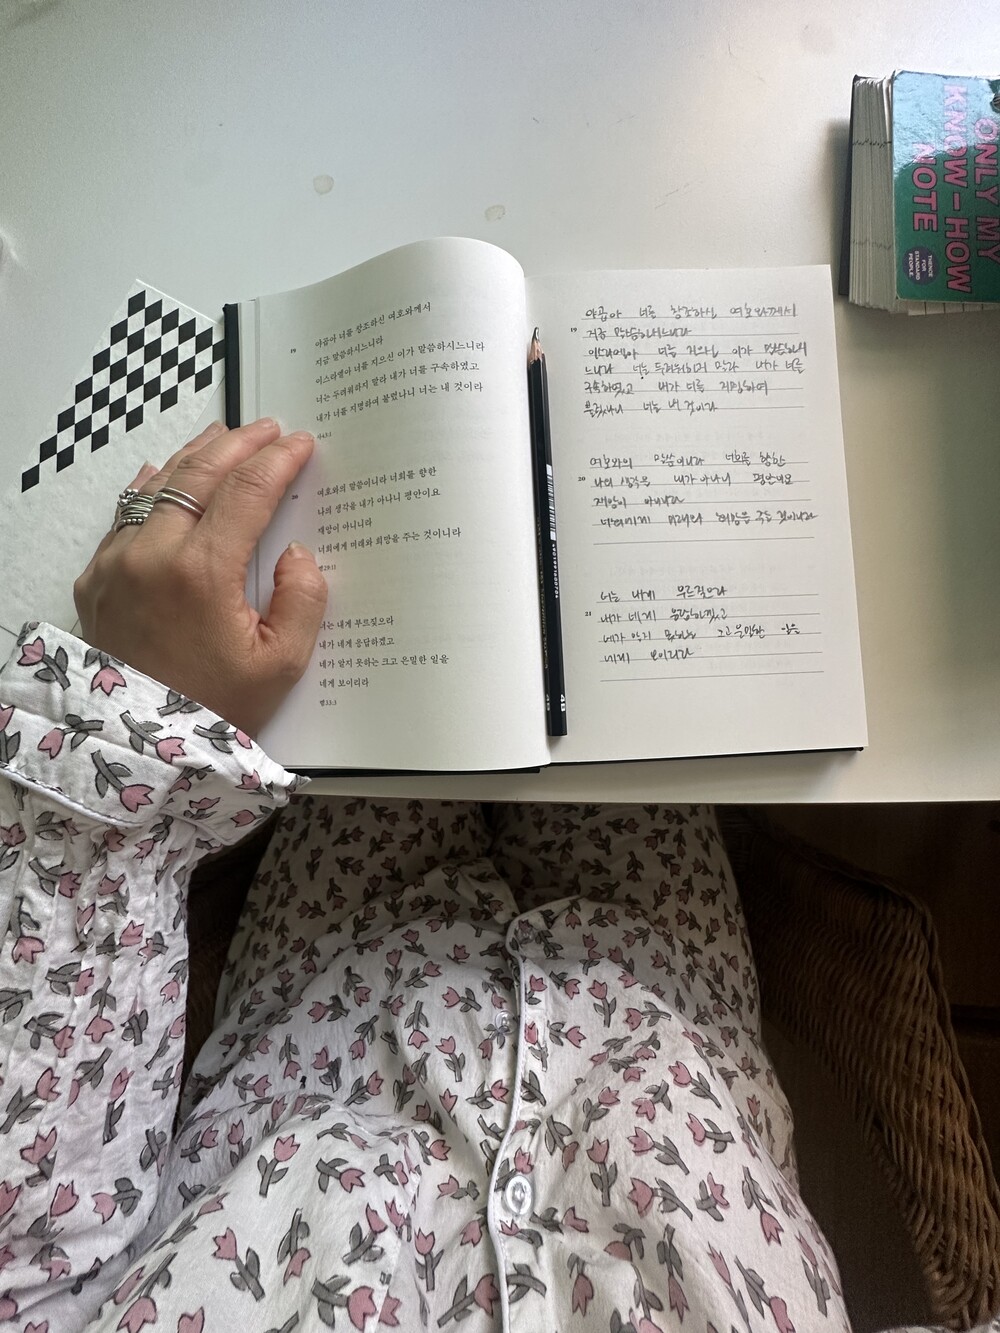 19
야곱아 너를 창조하신 여호와께서
지금 말씀하시느니라
이스라엘아 너를 지으신 이가 말씀하시느니라
너는 두려워하지 말라 내가 너를 구속하였고
내가 너를 지명하여 불렀나니 너는 내 것이라
사43:1
20
여호와의 말씀이니라 너희를 향한
나의 생각을 내가 아나니 평안이요
재앙이 아니니라
너희에게 미래와 희망을 주는 것이니라
렘29:11
너는 내게 부르짖으라
내가 네게 응답하겠고
네가 알지 못하는 크고 은밀한 일을
네게 보이리라
렘33:3
19
야곱아 너를 창조하신 여호와께서
지금 말씀하시느니라
이스라엘아 너를 지으신 이가 말씀하시
느니라 너는 두려워하지 말라 내가 너를
구속하였고 내가 너를 지명하여
불렀나니 너는 내 것이라
20
여호와의 말씀이니라 너희를 향한
나의 생각을 내가 아나니 평안이요
재앙이 아니니라
너희에게 미래와 희망을 주는 것이니라
21
너는 내게 부르짖으라
내가 네게 응답하겠고
네가 알지 못하는 크고 은밀한 일을
네게 보이리라
4901991600704
4B
ONLY MY
KNOW-HOW
NOTE
THENCE
FOR
STANDARD
PEOPLE